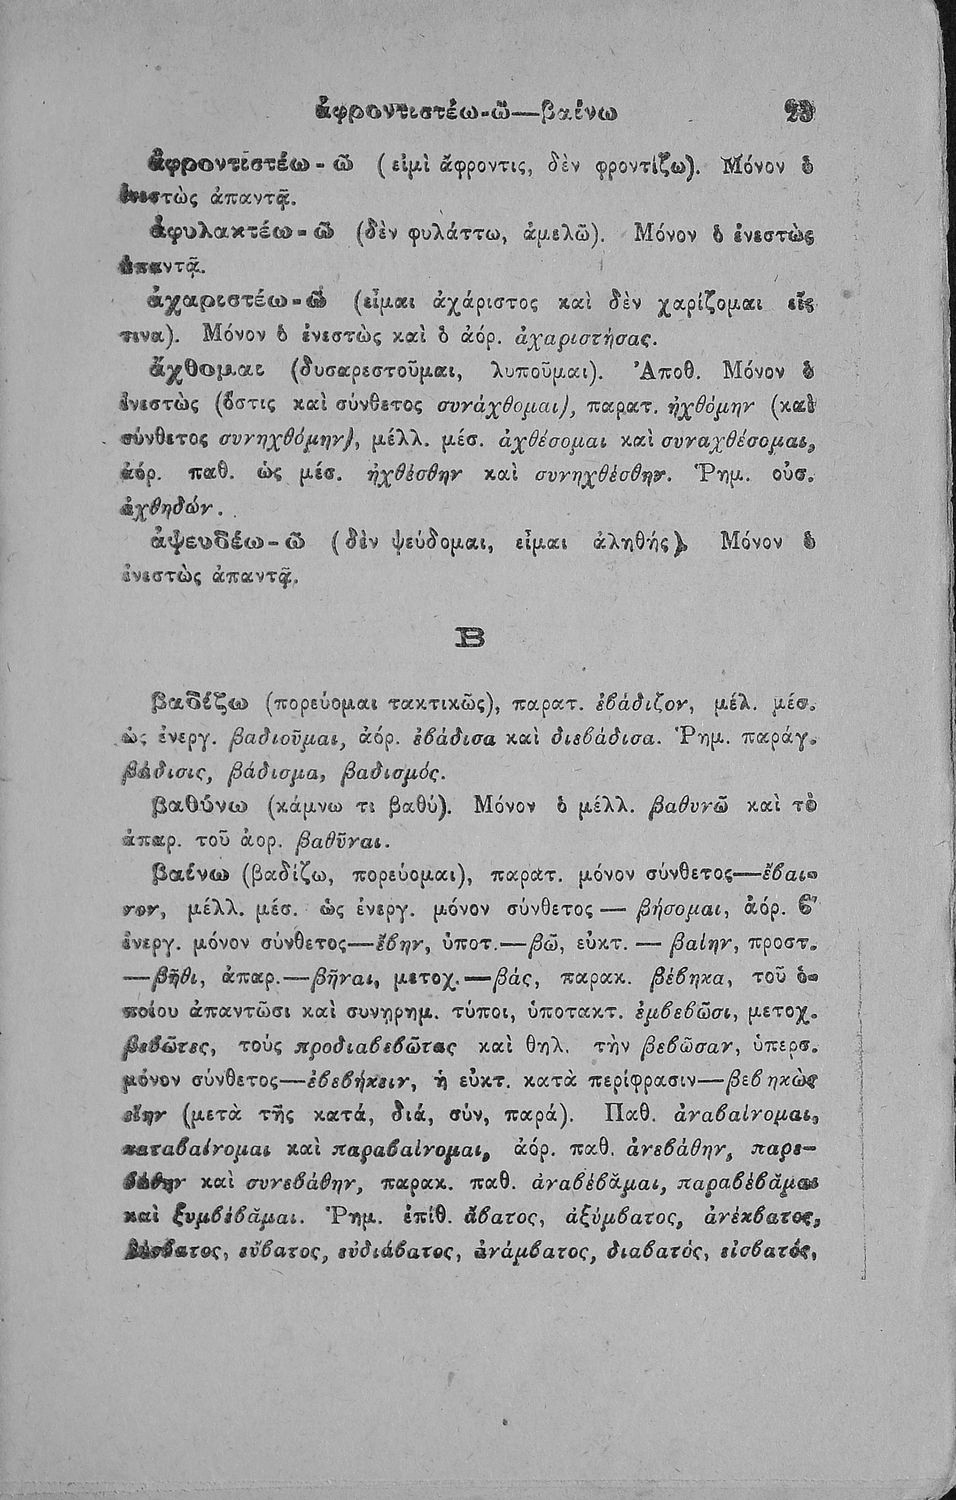 ἀφροντιστέω-ῶ—βαίνω 23
ἀφροντιστέω - ῶ (εἰμὶ ἄφροντις, δὲν φροντίζω). Μόνον ὁ
ἐνεστὼς ἀπαντᾷ.
ἀφυλακτέω - ῶ (δὲν φυλάττω, ἀμελῶ). Μόνον ὁ ἐνεστὼς
ἀπαντᾷ.
ἀχαριστέω - ῶ (εἶμαι ἀχάριστος καὶ δὲν χαρίζομαι εἴς
τινα). Μόνον ὁ ἐνεστὼς καὶ ὁ ἀόρ. ἀχαριστήσας.
ἄχθομαι (δυσαρεστοῦμαι, λυποῦμαι). Ἀποθ. Μόνον ὁ
ἐνεστὼς (ὅστις καὶ σύνθετος συνάχθομαι), παρατ. ἠχθόμην (καὶ
σύνθετος συνηχθόμην), μέλλ. μέσ. ἀχθέσομαι καὶ συναχθέσομαι,
ἀόρ. παθ. ὡς μέσ. ἠχθέσθην καὶ συνηχθέσθην. Ῥημ. οὐσ.
ἀχθηδών.
ἀψευδέω - ῶ (δὲν ψεύδομαι, εἶμαι ἀληθής). Μόνον ὁ
ἐνεστὼς ἀπαντᾷ.
Β
βαδίζω (πορεύομαι τακτικῶς), παρατ. ἐβάδιζον, μέλ. μέσ.
ὡς ἐνεργ. βαδιοῦμαι, ἀόρ. ἐβάδισα καὶ διεβάδισα. Ῥημ. παράγ.
βάδισις, βάδισμα, βαδισμός.
βαθύνω (κάμνω τι βαθύ). Μόνον ὁ μέλλ. βαθυνῶ καὶ τὸ
ἀπαρ. τοῦ ἀορ. βαθῦναι.
βαίνω (βαδίζω, πορεύομαι), παρατ. μόνον σύνθετος—ἔβαι-
νον, μέλλ. μέσ. ὡς ἐνεργ. μόνον σύνθετος — βήσομαι, ἀόρ. β′
ἐνεργ. μόνον σύνθετος—ἔβην, ὑποτ.—βῶ, εὐκτ. — βαίην, προστ.
—βῆθι, ἀπαρ.—βῆναι, μετοχ.—βάς, παρακ. βέβηκα, τοῦ ὁ-
ποίου ἀπαντῶσι καὶ συνῃρημ. τύποι, ὑποτακτ. ἐμβεβῶσι, μετοχ.
βεβῶτες, τοὺς προδιαβεβῶτας καὶ θηλ. τὴν βεβῶσαν, ὑπερσ.
μόνον σύνθετος—ἐβεβήκειν, ἡ εὐκτ. κατὰ περίφρασιν—βεβηκὼς
εἴην (μετὰ τῆς κατά, διά, σύν, παρά). Παθ. ἀναβαίνομαι,
καταβαίνομαι καὶ παραβαίνομαι, ἀόρ. παθ. ἀνεβάθην, παρε-
βάθην καὶ συνεβάθην, παρακ. παθ. ἀναβέβᾰμαι, παραβέβᾰμαι
καὶ ξυμβέβᾰμαι. Ῥημ. ἐπίθ. ἄβατος, ἀξύμβατος, ἀνέκβατος,
δύσβατος, εὔβατος, εὐδιάβατος, ἀνάμβατος, διαβατός, εἰσβατός,